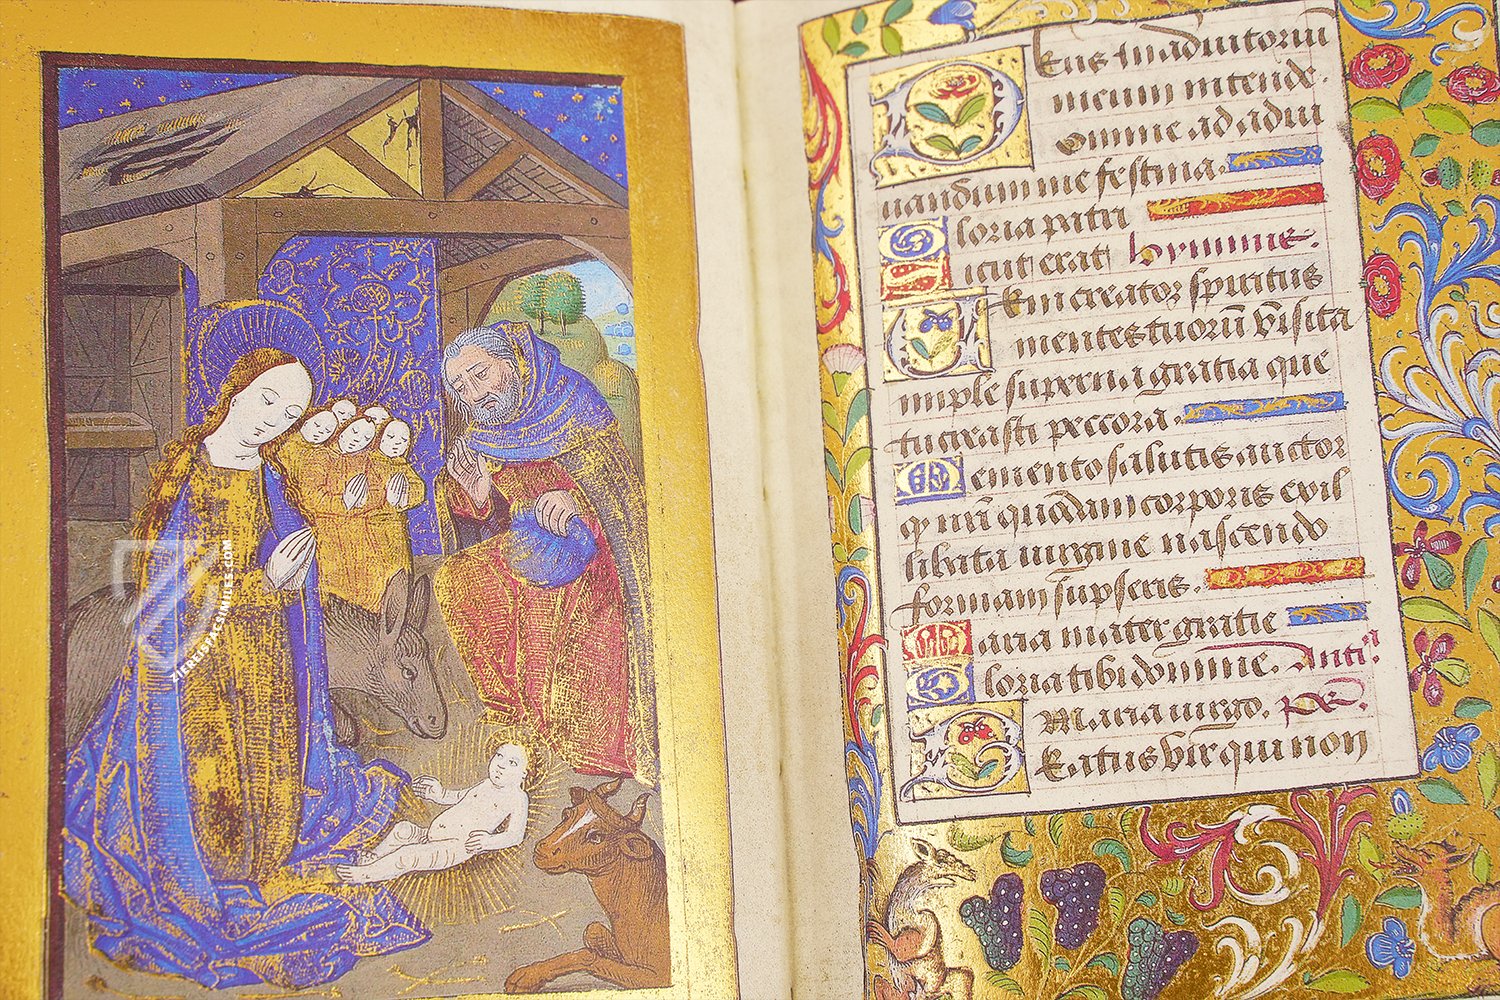 Deus in adiutorium
meum intende.
Domine ad adiu
uandum me festina.
Gloria patri
Sicut erat hymnne.
Veni creator spiritus
mentes tuorū visita
imple superna gratia que
tu creasti peccora.
Memento salutis auctor
qꝫ nr̄i quōdam corporis exil
libata uirgine nascendo
formam sūpseris.
Maria mater gratie
Gloria tibi domine. Anti.
Maria uirgo. ps.
Beatus vir qui non
ZIEREIS FACSIMILES.COM